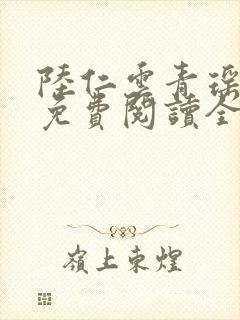 陸仁雲青瑤
免費閱讀全
嶺上東煌